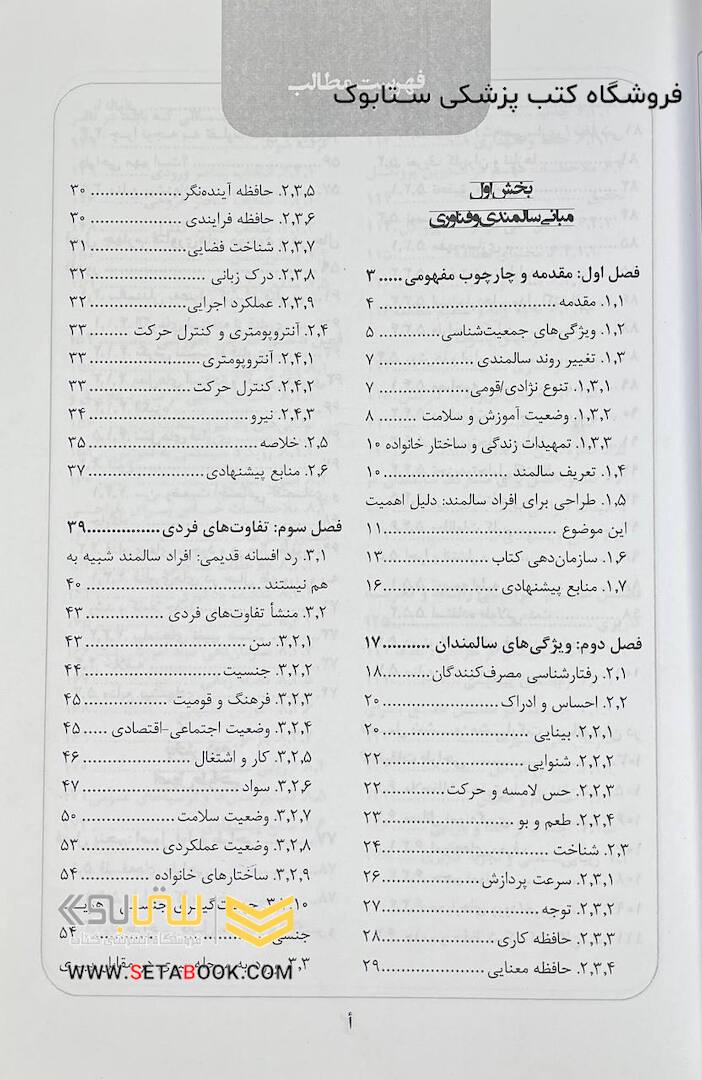 فهرست مطالب
فروشگاه کتب پزشکی ستابوک
بخش اول
مبانی سالمندی و فناوری
فصل اول: مقدمه و چارچوب مفهومی ..... ۳
۱,۱. مقدمه ............ ۴
۱,۲. ویژگی‌های جمعیت‌شناسی ............ ۵
۱,۳. تغییر روند سالمندی ............ ۷
۱,۳,۱. تنوع نژادی/قومی ............ ۷
۱,۳,۲. وضعیت آموزش و سلامت ........ ۸
۱,۳,۳. تمهیدات زندگی و ساختار خانواده ۱۰
۱,۴. تعریف سالمند ............ ۱۰
۱,۵. طراحی برای افراد سالمند: دلیل اهمیت
این موضوع ............ ۱۱
۱,۶. سازمان‌دهی کتاب ............ ۱۳
۱,۷. منابع پیشنهادی ............ ۱۶
فصل دوم: ویژگی‌های سالمندان .......... ۱۷
۲,۱. رفتارشناسی مصرف‌کنندگان .......... ۱۸
۲,۲. احساس و ادراک ............ ۲۰
۲,۲,۱. بینایی ............ ۲۰
۲,۲,۲. شنوایی ............ ۲۲
۲,۲,۳. حس لامسه و حرکت ............ ۲۲
۲,۲,۴. طعم و بو ............ ۲۳
۲,۳. شناخت ............ ۲۴
۲,۳,۱. سرعت پردازش ............ ۲۶
۲,۳,۲. توجه ............ ۲۷
۲,۳,۳. حافظه کاری ............ ۲۸
۲,۳,۴. حافظه معنایی ............ ۲۹
۲,۳,۵. حافظه آینده‌نگر ............ ۳۰
۲,۳,۶. حافظه فرایندی ............ ۳۰
۲,۳,۷. شناخت فضایی ............ ۳۱
۲,۳,۸. درک زبانی ............ ۳۲
۲,۳,۹. عملکرد اجرایی ............ ۳۲
۲,۴. آنتروپومتری و کنترل حرکت ........ ۳۳
۲,۴,۱. آنتروپومتری ............ ۳۳
۲,۴,۲. کنترل حرکت ............ ۳۳
۲,۴,۳. نیرو ............ ۳۴
۲,۵. خلاصه ............ ۳۵
۲,۶. منابع پیشنهادی ............ ۳۷
فصل سوم: تفاوت‌های فردی ............ ۳۹
۳,۱. رد افسانه قدیمی: افراد سالمند شبیه به
هم نیستند ............ ۴۰
۳,۲. منشأ تفاوت‌های فردی ............ ۴۳
۳,۲,۱. سن ............ ۴۳
۳,۲,۲. جنسیت ............ ۴۴
۳,۲,۳. فرهنگ و قومیت ............ ۴۵
۳,۲,۴. وضعیت اجتماعی-اقتصادی ..... ۴۵
۳,۲,۵. کار و اشتغال ............ ۴۶
۳,۲,۶. سواد ............ ۴۷
۳,۲,۷. وضعیت سلامت ............ ۵۰
۳,۲,۸. وضعیت عملکردی ............ ۵۳
۳,۲,۹. ساختارهای خانواده ............ ۵۴
جنسی ............ ۵۴
۳,۳.
ستابوک
WWW.SETABOOK.COM
أ